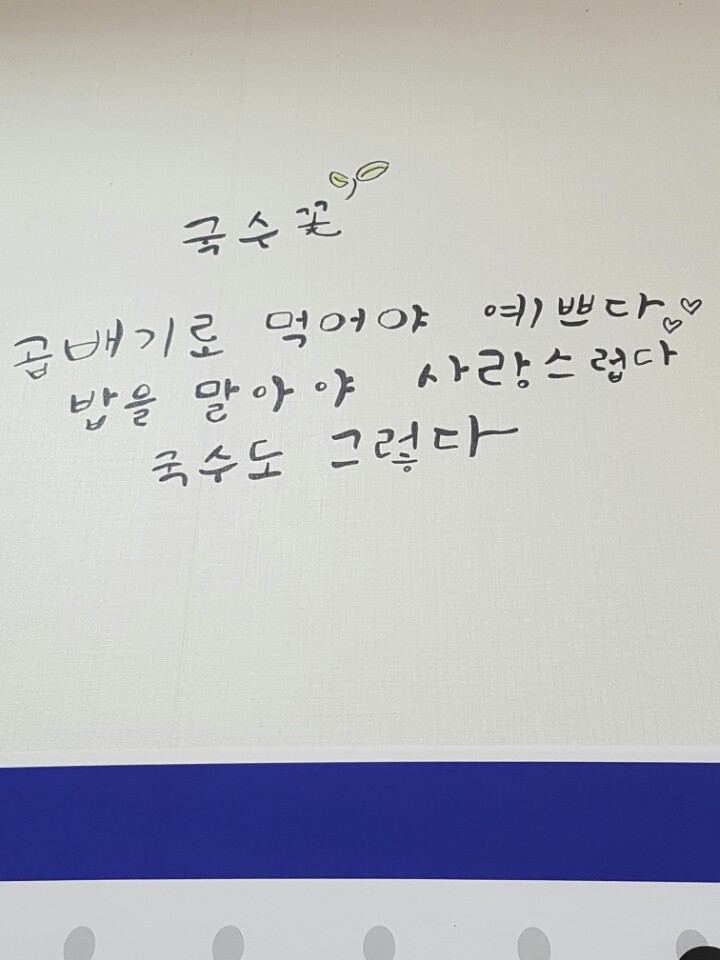 국수꽃
곱배기로 먹어야 예쁘다
밥을 말아야 사랑스럽다
국수도 그렇다